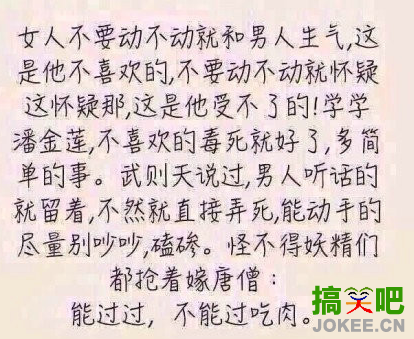 女人不要动不动就和男人生气,这
是他不喜欢的,不要动不动就怀疑
这怀疑那,这是他受不了的!学学
潘金莲,不喜欢的毒死就好了,多简
单的事。武则天说过,男人听话的
就留着,不然就直接弄死,能动手的
尽量别吵吵,磕碜。怪不得妖精们
都抢着嫁唐僧:
能过过,不能过吃肉。
搞笑吧
JOKEE.CN